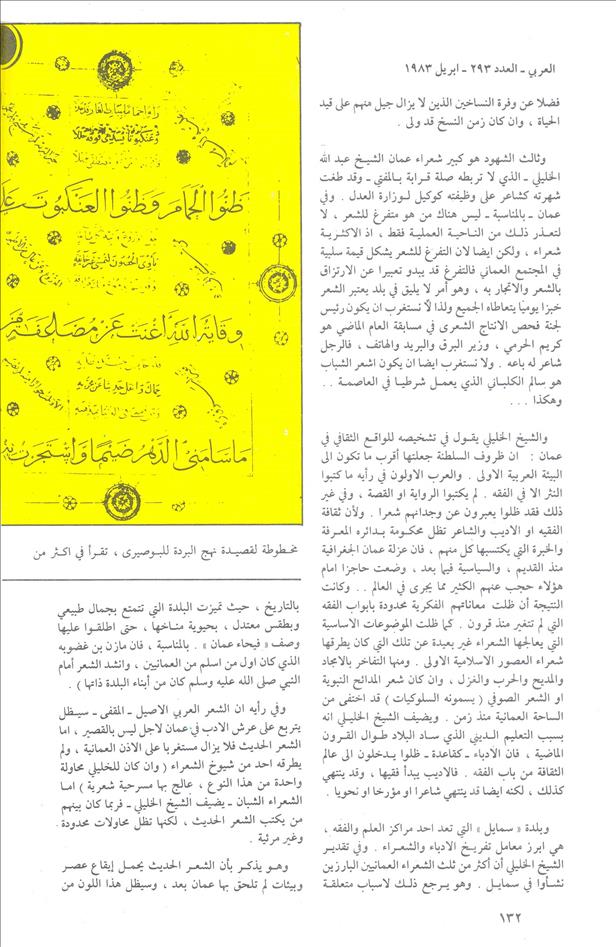 العربي - العدد ٢٩٣ - ابريل ١٩٨٣
فضلا عن وفرة النساخين الذين لا يزال جيل منهم على قيد
الحياة ، وان كان زمن النسخ قد ولى .
وثالث الشهود هو كبير شعراء عمان الشيخ عبد الله
الخليلي - الذي لا تربطه صلة قرابة بالمفتي - وقد طغت
شهرته كشاعر على وظيفته كوكيل لوزارة العدل . وفي
عمان - بالمناسبة - ليس هناك من هو متفرغ للشعر ، لا
لتعذر ذلك من الناحية العملية فقط ، اذ الاكثرية
شعراء ، ولكن ايضا لان التفرغ للشعر يشكل قيمة سلبية
في المجتمع العماني فالتفرغ قد يبدو تعبيرا عن الارتزاق
بالشعر والاتجار به ، وهو أمر لا يليق في بلد يعتبر الشعر
خبزا يوميا يتعاطاه الجميع ولذا لا نستغرب ان يكون رئيس
لجنة فحص الانتاج الشعرى في مسابقة العام الماضي هو
كريم الحرمي ، وزير البرق والبريد والهاتف ، فالرجل
شاعر له باعه . ولا تستغرب ايضا ان يكون اشعر الشباب
هو سالم الكلباني الذي يعمل شرطيا في العاصمة . .
وهكذا . . .
والشيخ الخليلي يقول في تشخيصه للواقع الثقافي في
عمان : ان ظروف السلطنة جعلتها أقرب ما تكون الى
البيئة العربية الاولى . والعرب الاولون في رأيه ما كتبوا
النثر الا في الفقه . لم يكتبوا الرواية او القصة ، وفي غير
ذلك فقد ظلوا يعبرون عن وجدانهم شعرا . ولأن ثقافة
الفقيه او الاديب والشاعر تظل محكومة بدائره المعرفة
والخبرة التي يكتسبها كل منهم ، فان عزلة عمان الجغرافية
منذ القديم ، والسياسية فيما بعد ، وضعت حاجزا امام
هؤلاء حجب عنهم الكثير مما يجرى في العالم . . وكانت
النتيجة أن ظلت معاناتهم الفكرية محدودة بابواب الفقه
التي لم تتغير منذ قرون . كما ظلت الموضوعات الاساسية
التي يعالجها الشعراء غير بعيدة عن تلك التي كان يطرقها
شعراء العصور الاسلامية الاولى . ومنها التفاخر بالامجاد
والمديح والحرب والغزل ، وان كان شعر المدائح النبوية
او الشعر الصوفي ( يسمونه السلوكيات ) قد اختفى من
الساحة العمانية منذ زمن . ويضيف الشيخ الخليلي انه
بسبب التعليم الديني الذي ساد البلاد طوال القرون
الماضية ، فان الادباء - كقاعدة - ظلوا يدخلون الى عالم
الثقافة من باب الفقه . فالاديب يبدأ فقيها ، وقد ينتهي
كذلك ، لكنه ايضا قد ينتهي شاعرا او مؤرخا او نحويا .
وبلدة « سمايل » التي تعد احد مراكز العلم والفقه ،
هي ابرز معامل تفريخ الادباء والشعراء . وفي تقدير
الشيخ الخليلي أن أكثر من ثلث الشعراء العمانيين البارزين
نشأوا في سمايل . وهو يرجع ذلك لاسباب متعلقة
ظنوا الحمام وظنوا العنكبوت على
وقاية الله أغنت عن مضاعفة من
ما سامني الدهر ضيما واستجرت به
مخطوطة لقصيدة نهج البردة للبوصيرى ، تقرأ في اكثر من
بالتاريخ ، حيث تميزت البلدة التي تتمتع بجمال طبيعي
وبطقس معتدل ، بحيوية مناخها ، حتى اطلقوا عليها
وصف « فيحاء عمان » . بالمناسبة ، فان مازن بن غضوبه
الذي كان اول من اسلم من العمانيين ، وانشد الشعر أمام
النبي صلى الله عليه وسلم كان من أبناء البلدة ذاتها ) .
وفي رأيه ان الشعر العربي الاصيل - المقفى - سيظل
يتربع على عرش الادب في عمان لاجل ليس بالقصير ، اما
الشعر الحديث فلا يزال مستغربا على الاذن العمانية ، ولم
يطرقه احد من شيوخ الشعراء ( وان كان للخليلي محاولة
واحدة من هذا النوع ، عالج بها مسرحية شعرية ) اما
الشعراء الشبان - يضيف الشيخ الخليلي - فربما كان بينهم
من يكتب الشعر الحديث ، لكنها تظل محاولات محدودة .
وغير مرئية .
وهو يذكر بأن الشعر الحديث يحمل إيقاع عصر
وبيئات لم تلحق بها عمان بعد ، وسيظل هذا اللون من
١٣٢